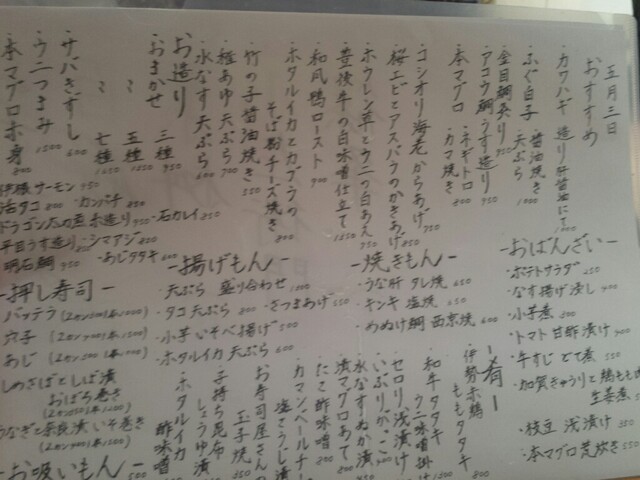 五月三日
おすすめ
・カワハギ 造り 肝醤油にて 1000
・ふぐ白子 醤油焼き 1000
天ぷら
・金目鯛炙り 950
・アコウ鯛うす造り 950
・本マグロ ・ネギトロ
・カマ焼き 800
・コシオリ海老からあげ 750
・桜エビとアスパラのかきあげ 850
・ホウレン草とウニの白あえ 950
・豊後牛の白味噌仕立て 1250
・和風鴨ロースト 900
・ホタルイカとカブラの
そば粉チーズ焼き 800
・竹の子醤油焼き 550
・稚あゆ天ぷら 700
・水なす天ぷら 600
お造り
おまかせ 三種 950
〃 五種 1250
〃 七種 1650
・サバきずし 600
・ウニつまみ 1500
・本マグロ赤身 800
伊勢サーモン 750
活タコ 800 ・カンパチ 850
平目うす造り ・シマアジ 800
明石鯛 950 ・あじタタキ 600
・石カレイ 850
-押し寿司-
バッテラ
穴子
あじ
しめさばとしば漬
おぼろ巻き
うなぎと奈良漬 いそ巻き
-お吸いもん-
-揚げもん-
・天ぷら 盛り合わせ 1000
・タコ天ぷら 800 ・さつまあげ 550
・小芋いそべ揚げ 500
・ホタルイカ天ぷら 600
-焼きもん-
・うな肝 タレ焼 250
・キンキ 塩焼
・かぬけ鯛 西京焼 600
-おばんざい-
・ポテトサラダ 250
・なす揚げ浸し 400
・小芋煮 300
・トマト甘酢漬け 400
・牛すじ どて煮 550
・加賀きゅうりと鶏もも肉
生姜煮
・枝豆 浅漬け 300
・本マグロ荒炊き 550
-肴-
・伊勢赤鶏
ももタタキ 800
・和牛タタキ
ウニ味噌掛け 1200
・セロリ浅漬け 300
・いぶりがっこ 400
・水なすぬか漬
・漬マグロあて
・たこ酢味噌 800
・カマンベールチーズ
塩こうじ漬
・お寿司屋さんの
玉子焼
・子持ち昆布
しょうゆ漬
・ホタルイカ
酢味噌